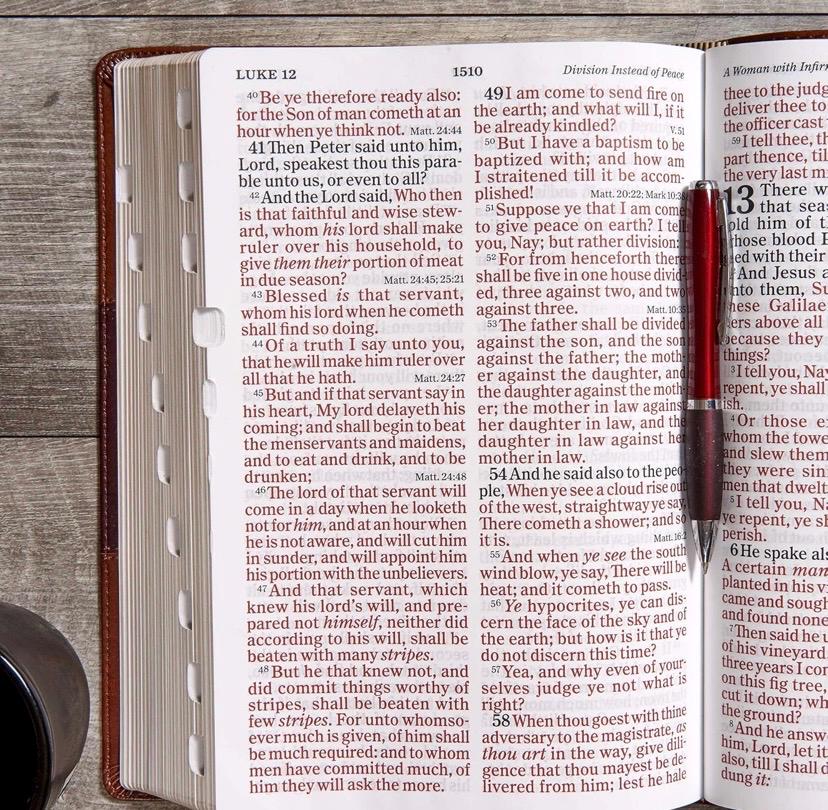 LUKE 12
1510
Division Instead of Peace
40 Be ye therefore ready also:
for the Son of man cometh at an
hour when ye think not. Matt. 24:44
41 Then Peter said unto him,
Lord, speakest thou this para-
ble unto us, or even to all?
42 And the Lord said, Who then
is that faithful and wise stew-
ard, whom his lord shall make
ruler over his household, to
give them their portion of meat
in due season? Matt. 24:45; 25:21
43 Blessed is that servant,
whom his lord when he cometh
shall find so doing.
44 Of a truth I say unto you,
that he will make him ruler over
all that he hath. Matt. 24:27
45 But and if that servant say in
his heart, My lord delayeth his
coming; and shall begin to beat
the menservants and maidens,
and to eat and drink, and to be
drunken; Matt. 24:48
46 The lord of that servant will
come in a day when he looketh
not for him, and at an hour when
he is not aware, and will cut him
in sunder, and will appoint him
his portion with the unbelievers.
47 And that servant, which
knew his lord's will, and pre-
pared not himself, neither did
according to his will, shall be
beaten with many stripes.
48 But he that knew not, and
did commit things worthy of
stripes, shall be beaten with
few stripes. For unto whomso-
ever much is given, of him shall
be much required: and to whom
men have committed much, of
him they will ask the more.
49 I am come to send fire on
the earth; and what will I, if it
be already kindled? v. 51
50 But I have a baptism to be
baptized with; and how am
I straitened till it be accom-
plished! Matt. 20:22; Mark 10:38
51 Suppose ye that I am come
to give peace on earth? I tell
you, Nay; but rather division:
52 For from henceforth there
shall be five in one house divid-
ed, three against two, and two
against three. Matt. 10:35
53 The father shall be divided
against the son, and the son
against the father; the moth-
er against the daughter, and
the daughter against the moth-
er; the mother in law against
her daughter in law, and the
daughter in law against her
mother in law.
54 And he said also to the peo-
ple, When ye see a cloud rise out
of the west, straightway ye say,
There cometh a shower; and so
it is. Matt. 16:2
55 And when ye see the south
wind blow, ye say, There will be
heat; and it cometh to pass.
56 Ye hypocrites, ye can dis-
cern the face of the sky and of
the earth; but how is it that ye
do not discern this time?
57 Yea, and why even of your-
selves judge ye not what is
right?
58 When thou goest with thine
adversary to the magistrate, as
thou art in the way, give dili-
gence that thou mayest be de-
livered from him; lest he hale
A Woman with Infirm
thee to the judg
deliver thee to
the officer cast
59 I tell thee, th
part thence, till
the very last m
13 There w
that seas
old him of t
whose blood P
ed with their
And Jesus a
nto them, Su
hese Galilae
ers above all
because they
things?
3 I tell you, Nay
repent, ye shall
ish.
4 Or those ei
whom the towe
and slew them
they were sin
men that dwelt
5 I tell you, Na
ye repent, ye sh
perish.
6 He spake als
A certain man
planted in his vi
came and sough
and found none
7 Then said he u
of his vineyard
three years I com
on this fig tree,
cut it down; wh
the ground?
8 And he answ
him, Lord, let it
also, till I shall d
dung it: